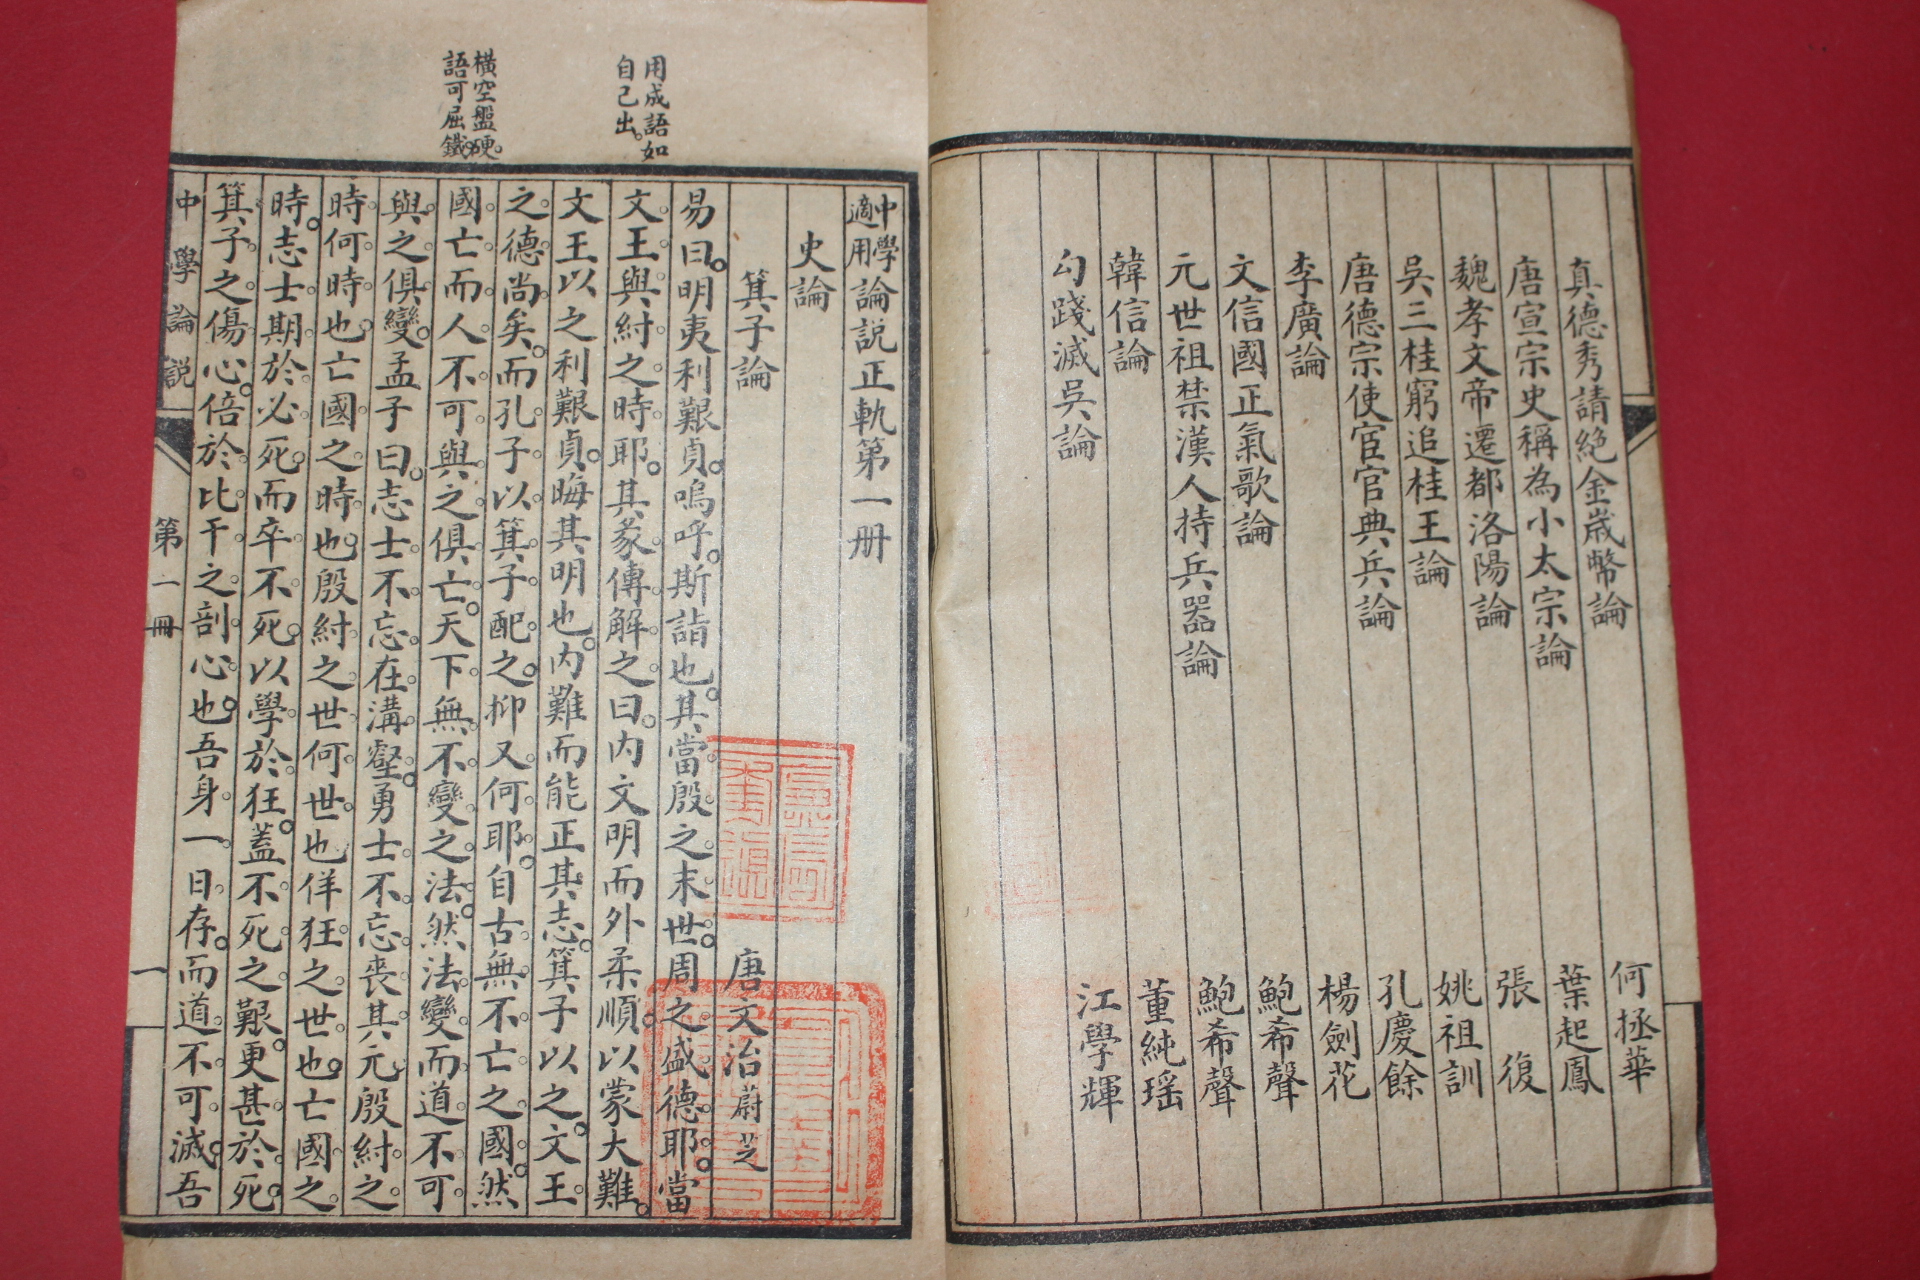 真德秀請絕金歲幣論 何拯華
唐宣宗史稱為小太宗論 葉起鳳
魏孝文帝遷都洛陽論 張復
吳三桂窮追桂王論 姚祖訓
唐德宗使宦官典兵論 孔慶餘
李廣論 楊劍花
文信國正氣歌論 鮑希聲
元世祖禁漢人持兵器論 鮑希聲
韓信論 董純瑤
勾踐滅吳論 江學輝
中學適用論說正軌第一册
史論
箕子論 唐文治蔚芝
易曰。明夷利艱貞。嗚呼。斯詣也。其當殷之末世。周之盛德耶。當
文王與紂之時耶。其彖傳解之曰。內文明而外柔順。以蒙大難。
文王以之利艱貞。晦其明也。內難而能正其志。箕子以之。文王
之德尚矣。而孔子以箕子配之。抑又何耶。自古無不亡之國。然
國亡而人不可與之俱亡。天下無不變之法。然法變而道不可
與之俱變。孟子曰。志士不忘在溝壑。勇士不忘喪其元。殷紂之
時。何時也。亡國之時也。殷紂之世。何世也。佯狂之世也。亡國之
時。志士期於必死。而卒不死。以學於狂。蓋不死之艱。更甚於死。
箕子之傷心。倍於比干之剖心也。吾身一日存。而道不可滅。吾
用成語如
自己出。
橫空盤硬。
語可屈鐵。
中學論說
第一冊
一